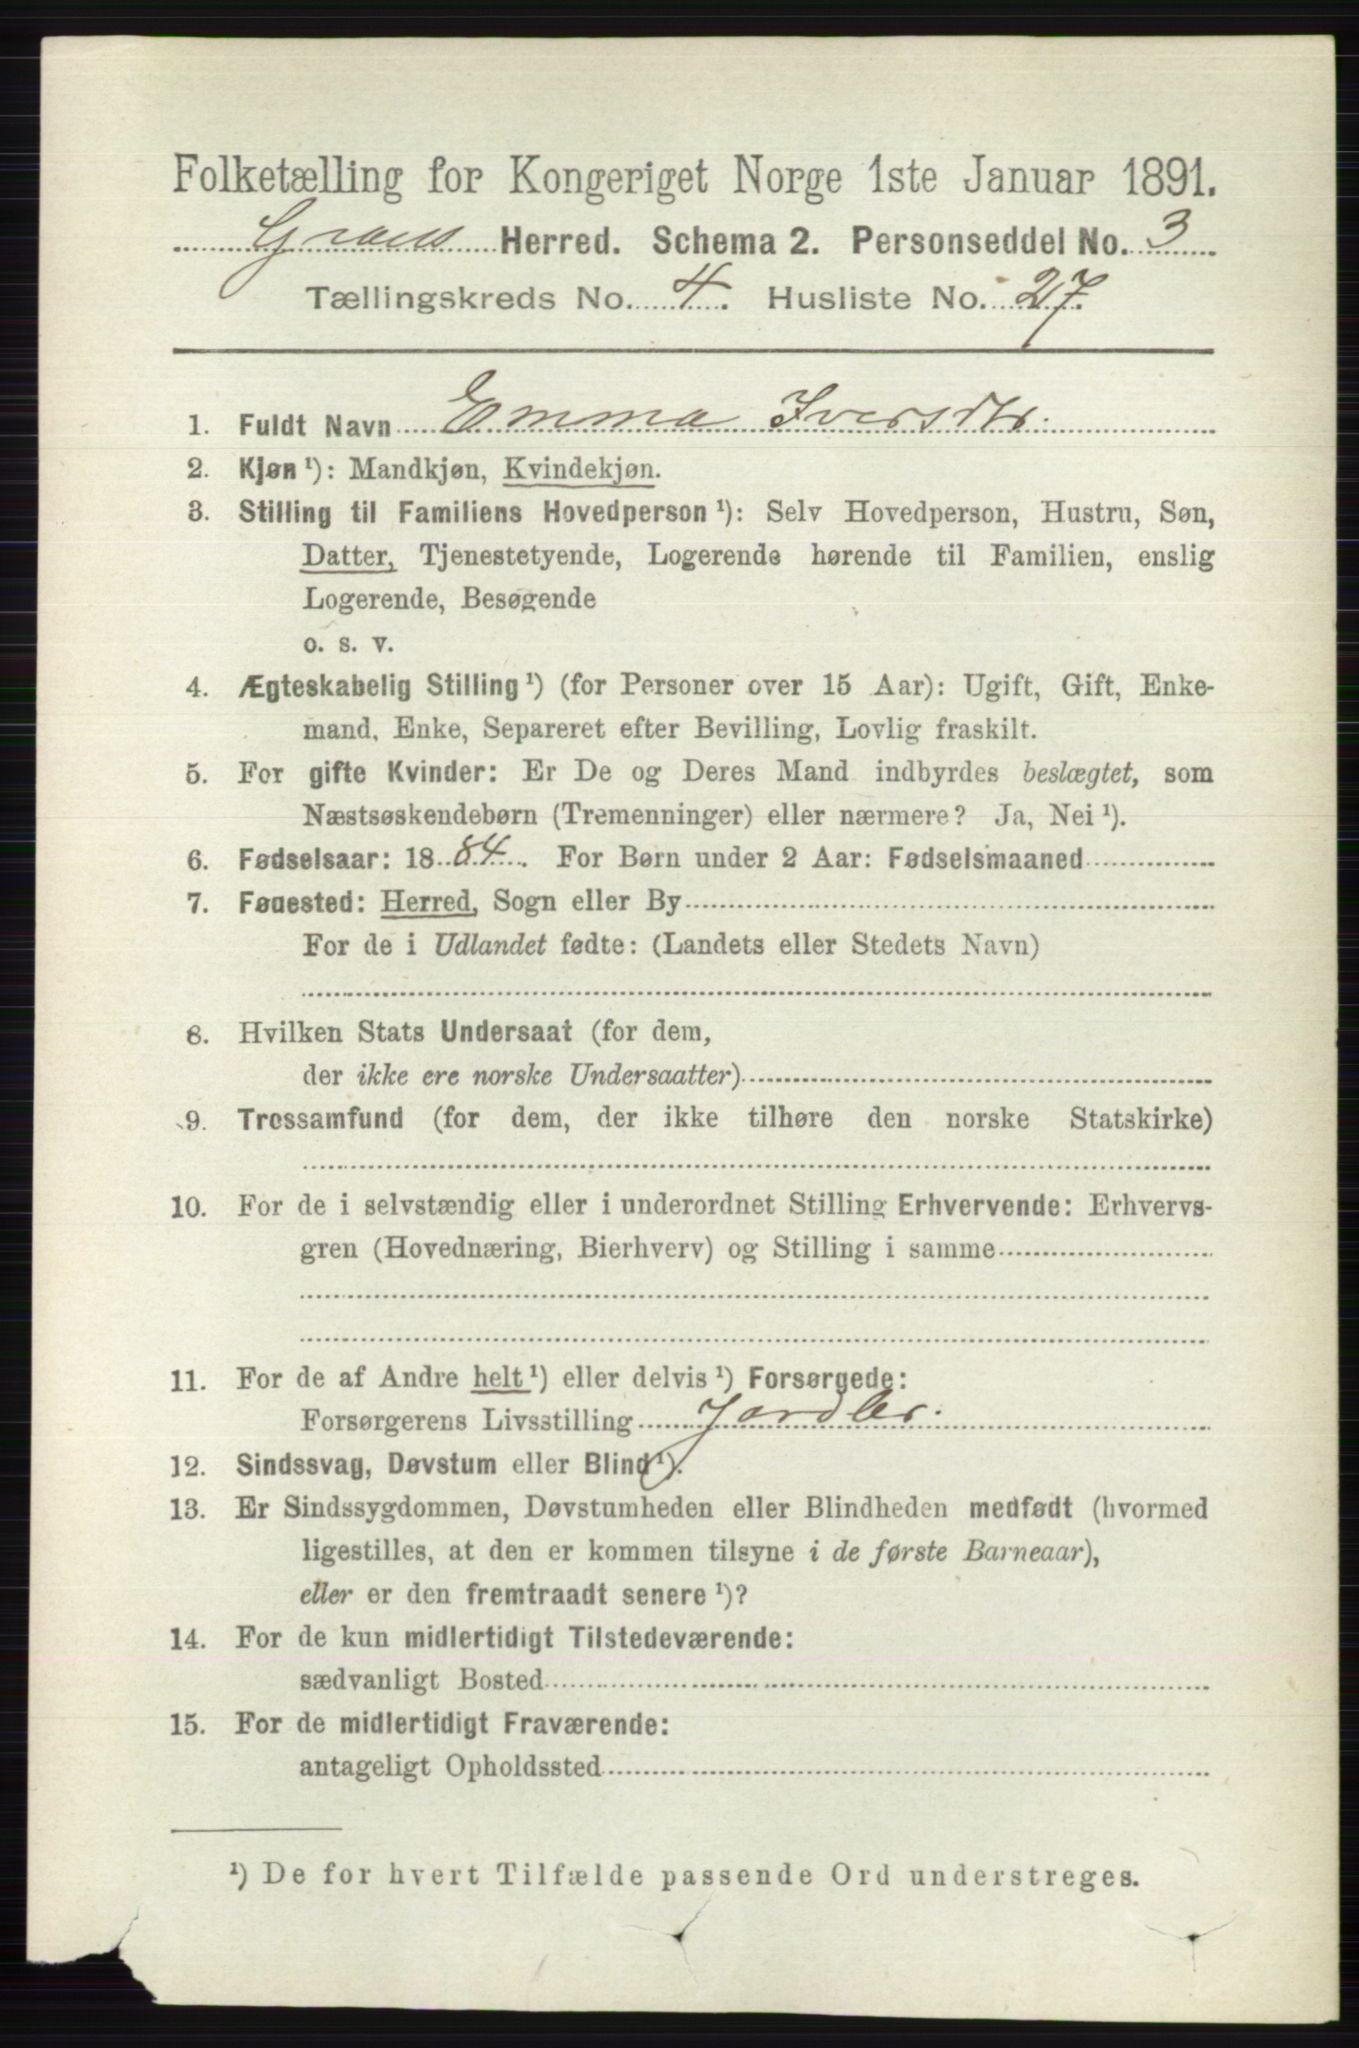 Folketælling for Kongeriget Norge 1ste Januar 1891.
Grans Herred. Schema 2. Personseddel No. 3
Tællingskreds No. 4. Husliste No. 27.
1. Fuldt Navn Emma Iversdtr.
2. Kjøn¹): Mandkjøn, Kvindekjøn.
3. Stilling til Familiens Hovedperson¹): Selv Hovedperson, Hustru, Søn,
Datter, Tjenestetyende, Logerende hørende til Familien, enslig
Logerende, Besøgende
o. s. v.
4. Ægteskabelig Stilling¹) (for Personer over 15 Aar): Ugift, Gift, Enke-
mand, Enke, Separeret efter Bevilling, Lovlig fraskilt.
5. For gifte Kvinder: Er De og Deres Mand indbyrdes beslægtet, som
Næstsøskendebørn (Tremenninger) eller nærmere? Ja, Nei¹).
6. Fødselsaar: 1884. For Børn under 2 Aar: Fødselsmaaned
7. Fødested: Herred, Sogn eller By
For de i Udlandet fødte: (Landets eller Stedets Navn)
8. Hvilken Stats Undersaat (for dem,
der ikke ere norske Undersaatter)
9. Trossamfund (for dem, der ikke tilhøre den norske Statskirke)
10. For de i selvstændig eller i underordnet Stilling Erhvervende: Erhvervs-
gren (Hovednæring, Bierhverv) og Stilling i samme
11. For de af Andre helt¹) eller delvis¹) Forsørgede:
Forsørgerens Livsstilling Jordbr.
12. Sindssvag, Døvstum eller Blind¹).
13. Er Sindssygdommen, Døvstumheden eller Blindheden medfødt (hvormed
ligestilles, at den er kommen tilsyne i de første Barneaar),
eller er den fremtraadt senere¹)?
14. For de kun midlertidigt Tilstedeværende:
sædvanligt Bosted
15. For de midlertidigt Fraværende:
antageligt Opholdssted
¹) De for hvert Tilfælde passende Ord understreges.